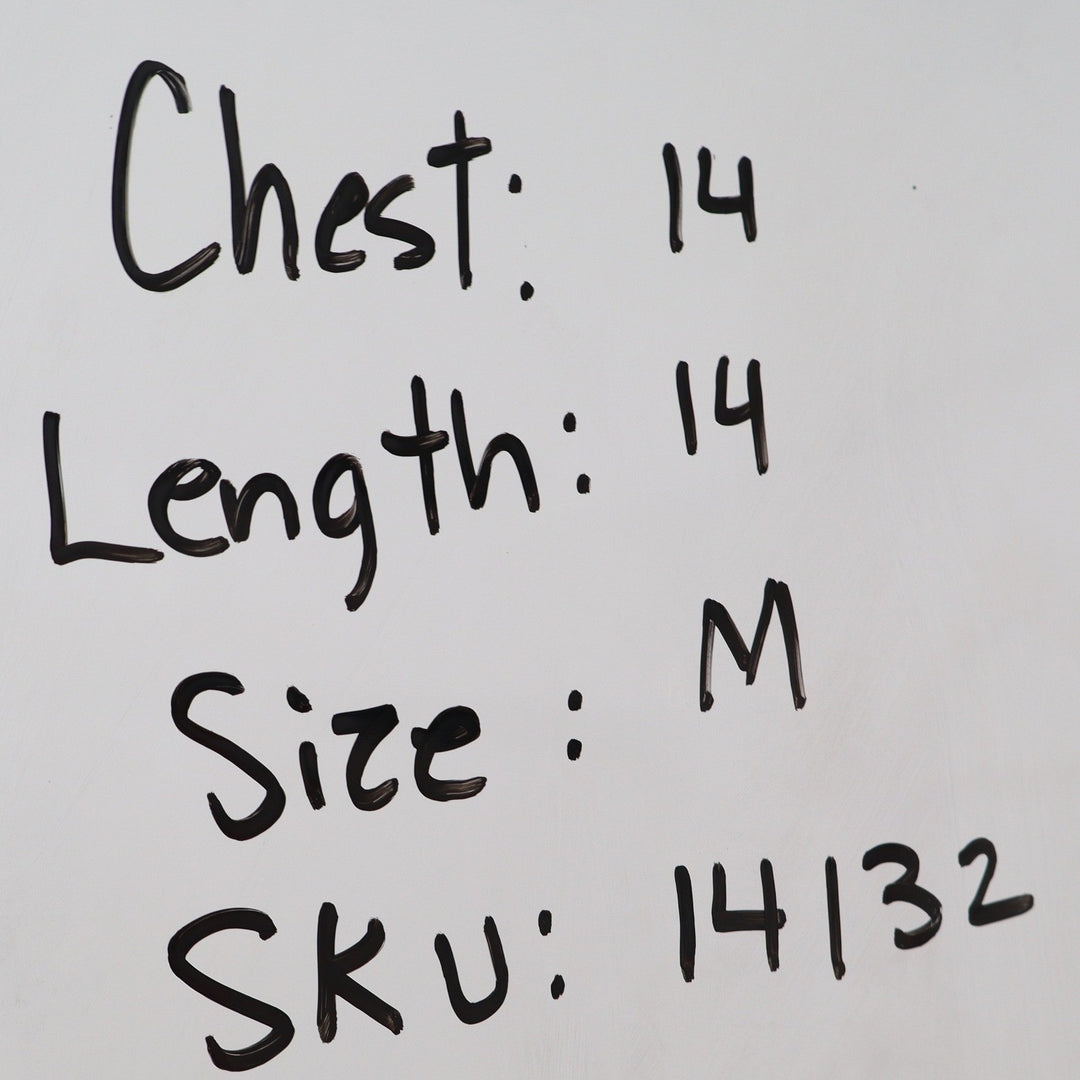 Chest: 14
Length: 14
Size: M
SKU: 14132